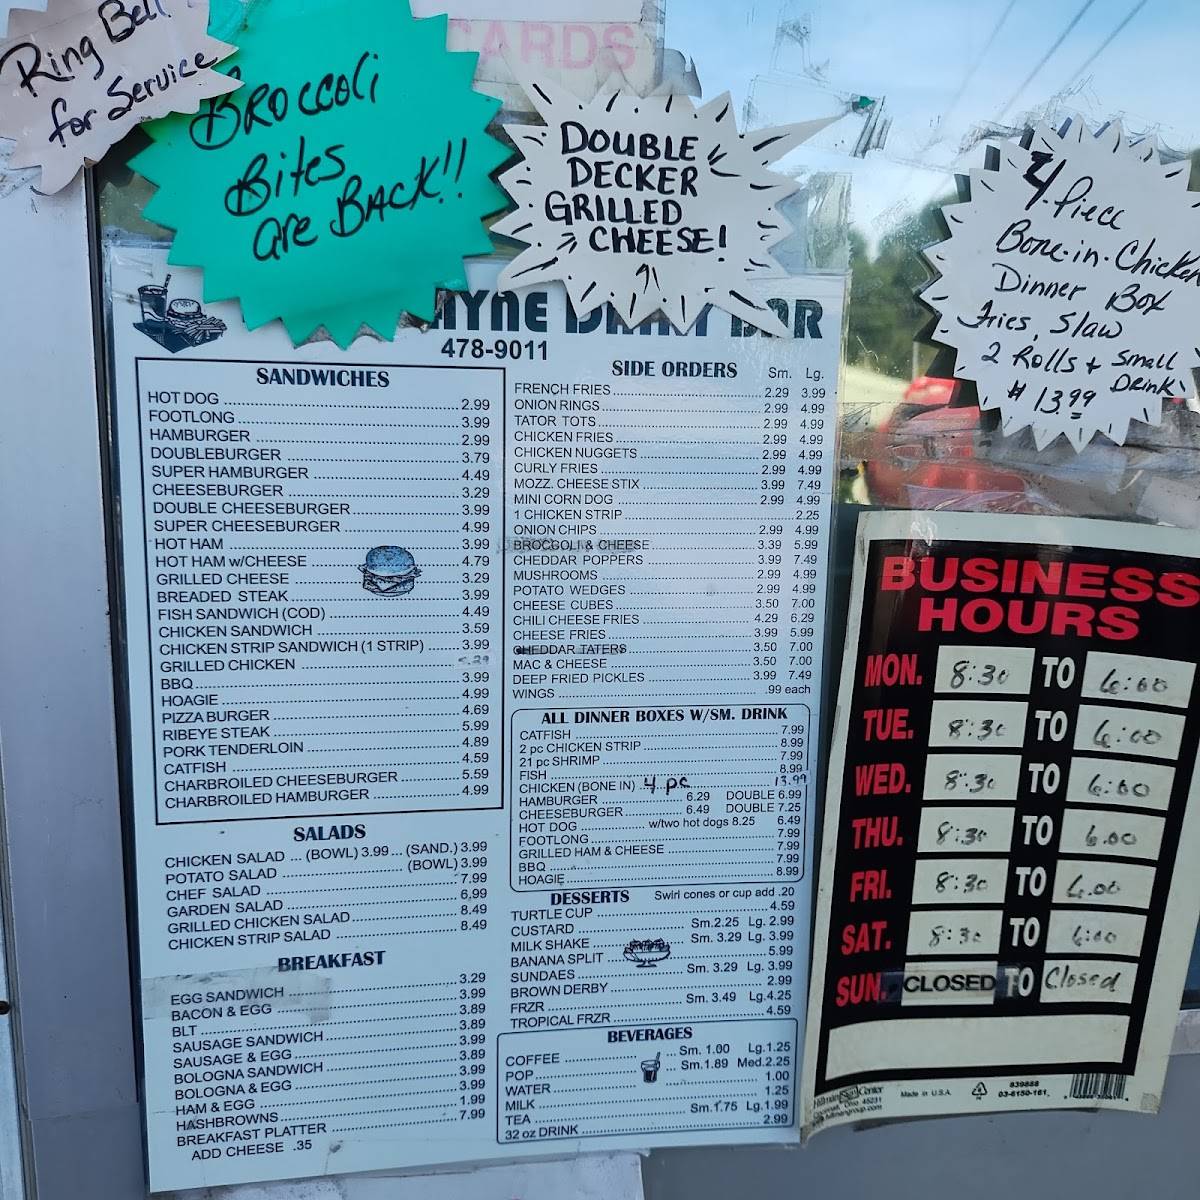 Ring Bell
for Service
BROCCOLi
Bites
are BACK!!
CARDS
DOUBLE
DECKER
GRILLED
CHEESE!
4 Piece
Bone-in-Chicken
Dinner Box
Fries, Slaw
2 Rolls + Small
Drink
$13.99
BAR
478-9011
SANDWICHES
HOT DOG 2.99
FOOTLONG 3.99
HAMBURGER 2.99
DOUBLEBURGER 3.79
SUPER HAMBURGER 4.49
CHEESEBURGER 3.29
DOUBLE CHEESEBURGER 3.99
SUPER CHEESEBURGER 4.99
HOT HAM 3.99
HOT HAM w/CHEESE 4.79
GRILLED CHEESE 3.29
BREADED STEAK 3.99
FISH SANDWICH (COD) 4.49
CHICKEN SANDWICH 3.59
CHICKEN STRIP SANDWICH (1 STRIP) 3.99
GRILLED CHICKEN
BBQ 3.99
HOAGIE 4.99
PIZZA BURGER 4.69
RIBEYE STEAK 5.99
PORK TENDERLOIN 4.89
CATFISH 4.59
CHARBROILED CHEESEBURGER 5.59
CHARBROILED HAMBURGER 4.99
SALADS
CHICKEN SALAD ... (BOWL) 3.99 ... (SAND.) 3.99
POTATO SALAD (BOWL) 3.99
CHEF SALAD 7.99
GARDEN SALAD 6.99
GRILLED CHICKEN SALAD 8.49
CHICKEN STRIP SALAD 8.49
BREAKFAST
EGG SANDWICH 3.29
BACON & EGG 3.99
BLT 3.89
SAUSAGE SANDWICH 3.89
SAUSAGE & EGG 3.99
BOLOGNA SANDWICH 3.89
BOLOGNA & EGG 3.99
HAM & EGG 3.99
HASHBROWNS 1.99
BREAKFAST PLATTER 7.99
ADD CHEESE .35
SIDE ORDERS Sm. Lg.
FRENCH FRIES 2.29 3.99
ONION RINGS 2.99 4.99
TATOR TOTS 2.99 4.99
CHICKEN FRIES 2.99 4.99
CHICKEN NUGGETS 2.99 4.99
CURLY FRIES 2.99 4.99
MOZZ. CHEESE STIX 3.99 7.49
MINI CORN DOG 2.99 4.99
1 CHICKEN STRIP 2.25
ONION CHIPS 2.99 4.99
BROCCOLI & CHEESE 3.39 5.99
CHEDDAR POPPERS 3.99 7.49
MUSHROOMS 2.99 4.99
POTATO WEDGES 2.99 4.99
CHEESE CUBES 3.50 7.00
CHILI CHEESE FRIES 4.29 6.29
CHEESE FRIES 3.99 5.99
CHEDDAR TATERS 3.50 7.00
MAC & CHEESE 3.50 7.00
DEEP FRIED PICKLES 3.99 7.49
WINGS .99 each
ALL DINNER BOXES W/SM. DRINK
CATFISH 7.99
2 pc CHICKEN STRIP 8.99
21 pc SHRIMP 7.99
FISH 8.99
CHICKEN (BONE IN) 4 pc 13.99
HAMBURGER 6.29 DOUBLE 6.99
CHEESEBURGER 6.49 DOUBLE 7.25
HOT DOG w/two hot dogs 8.25 6.49
FOOTLONG 7.99
GRILLED HAM & CHEESE 7.99
BBQ 7.99
HOAGIE 8.99
DESSERTS Swirl cones or cup add .20
TURTLE CUP 4.59
CUSTARD Sm.2.25 Lg. 2.99
MILK SHAKE Sm. 3.29 Lg. 3.99
BANANA SPLIT 5.99
SUNDAES Sm. 3.29 Lg. 3.99
BROWN DERBY 2.99
FRZR Sm. 3.49 Lg.4.25
TROPICAL FRZR 4.59
BEVERAGES
COFFEE Sm. 1.00 Lg.1.25
POP Sm.1.89 Med.2.25
WATER 1.00
MILK 1.25
TEA Sm.1.75 Lg.1.99
32 oz DRINK 2.99
BUSINESS
HOURS
MON. 8:30 TO 6:00
TUE. 8:30 TO 6:00
WED. 8:30 TO 6:00
THU. 8:30 TO 6:00
FRI. 8:30 TO 6:00
SAT. 8:30 TO 6:00
SUN. CLOSED TO Closed
Made in U.S.A.
839888
03-6150-161